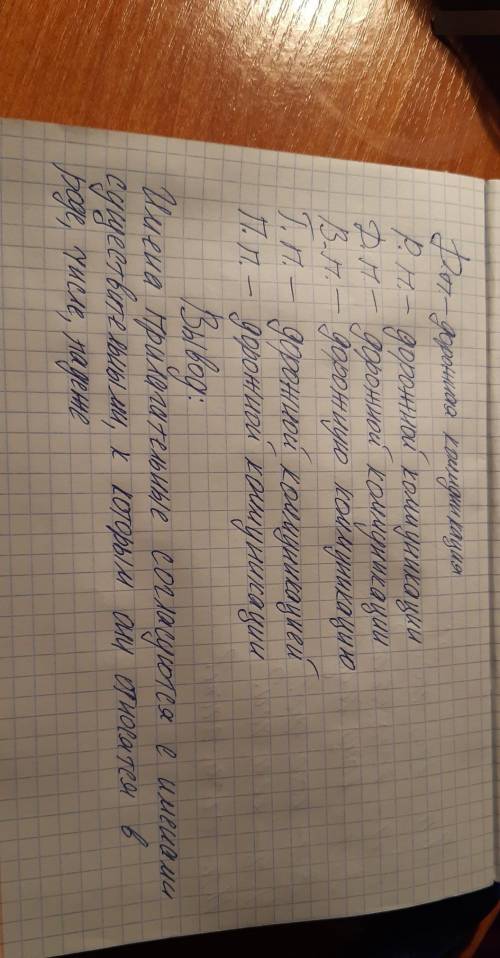 Р. п. – дорожной комуникации
Д. п – дорожной комуникации
В. п. – дорожную комуникацию
Т. п. – дорожной комуникацией
П. п. – дорожной комуникации
Вывод:
Имена прилагательные согласуются с именами
существительными, к которым они относятся в
роде, числе, падеже